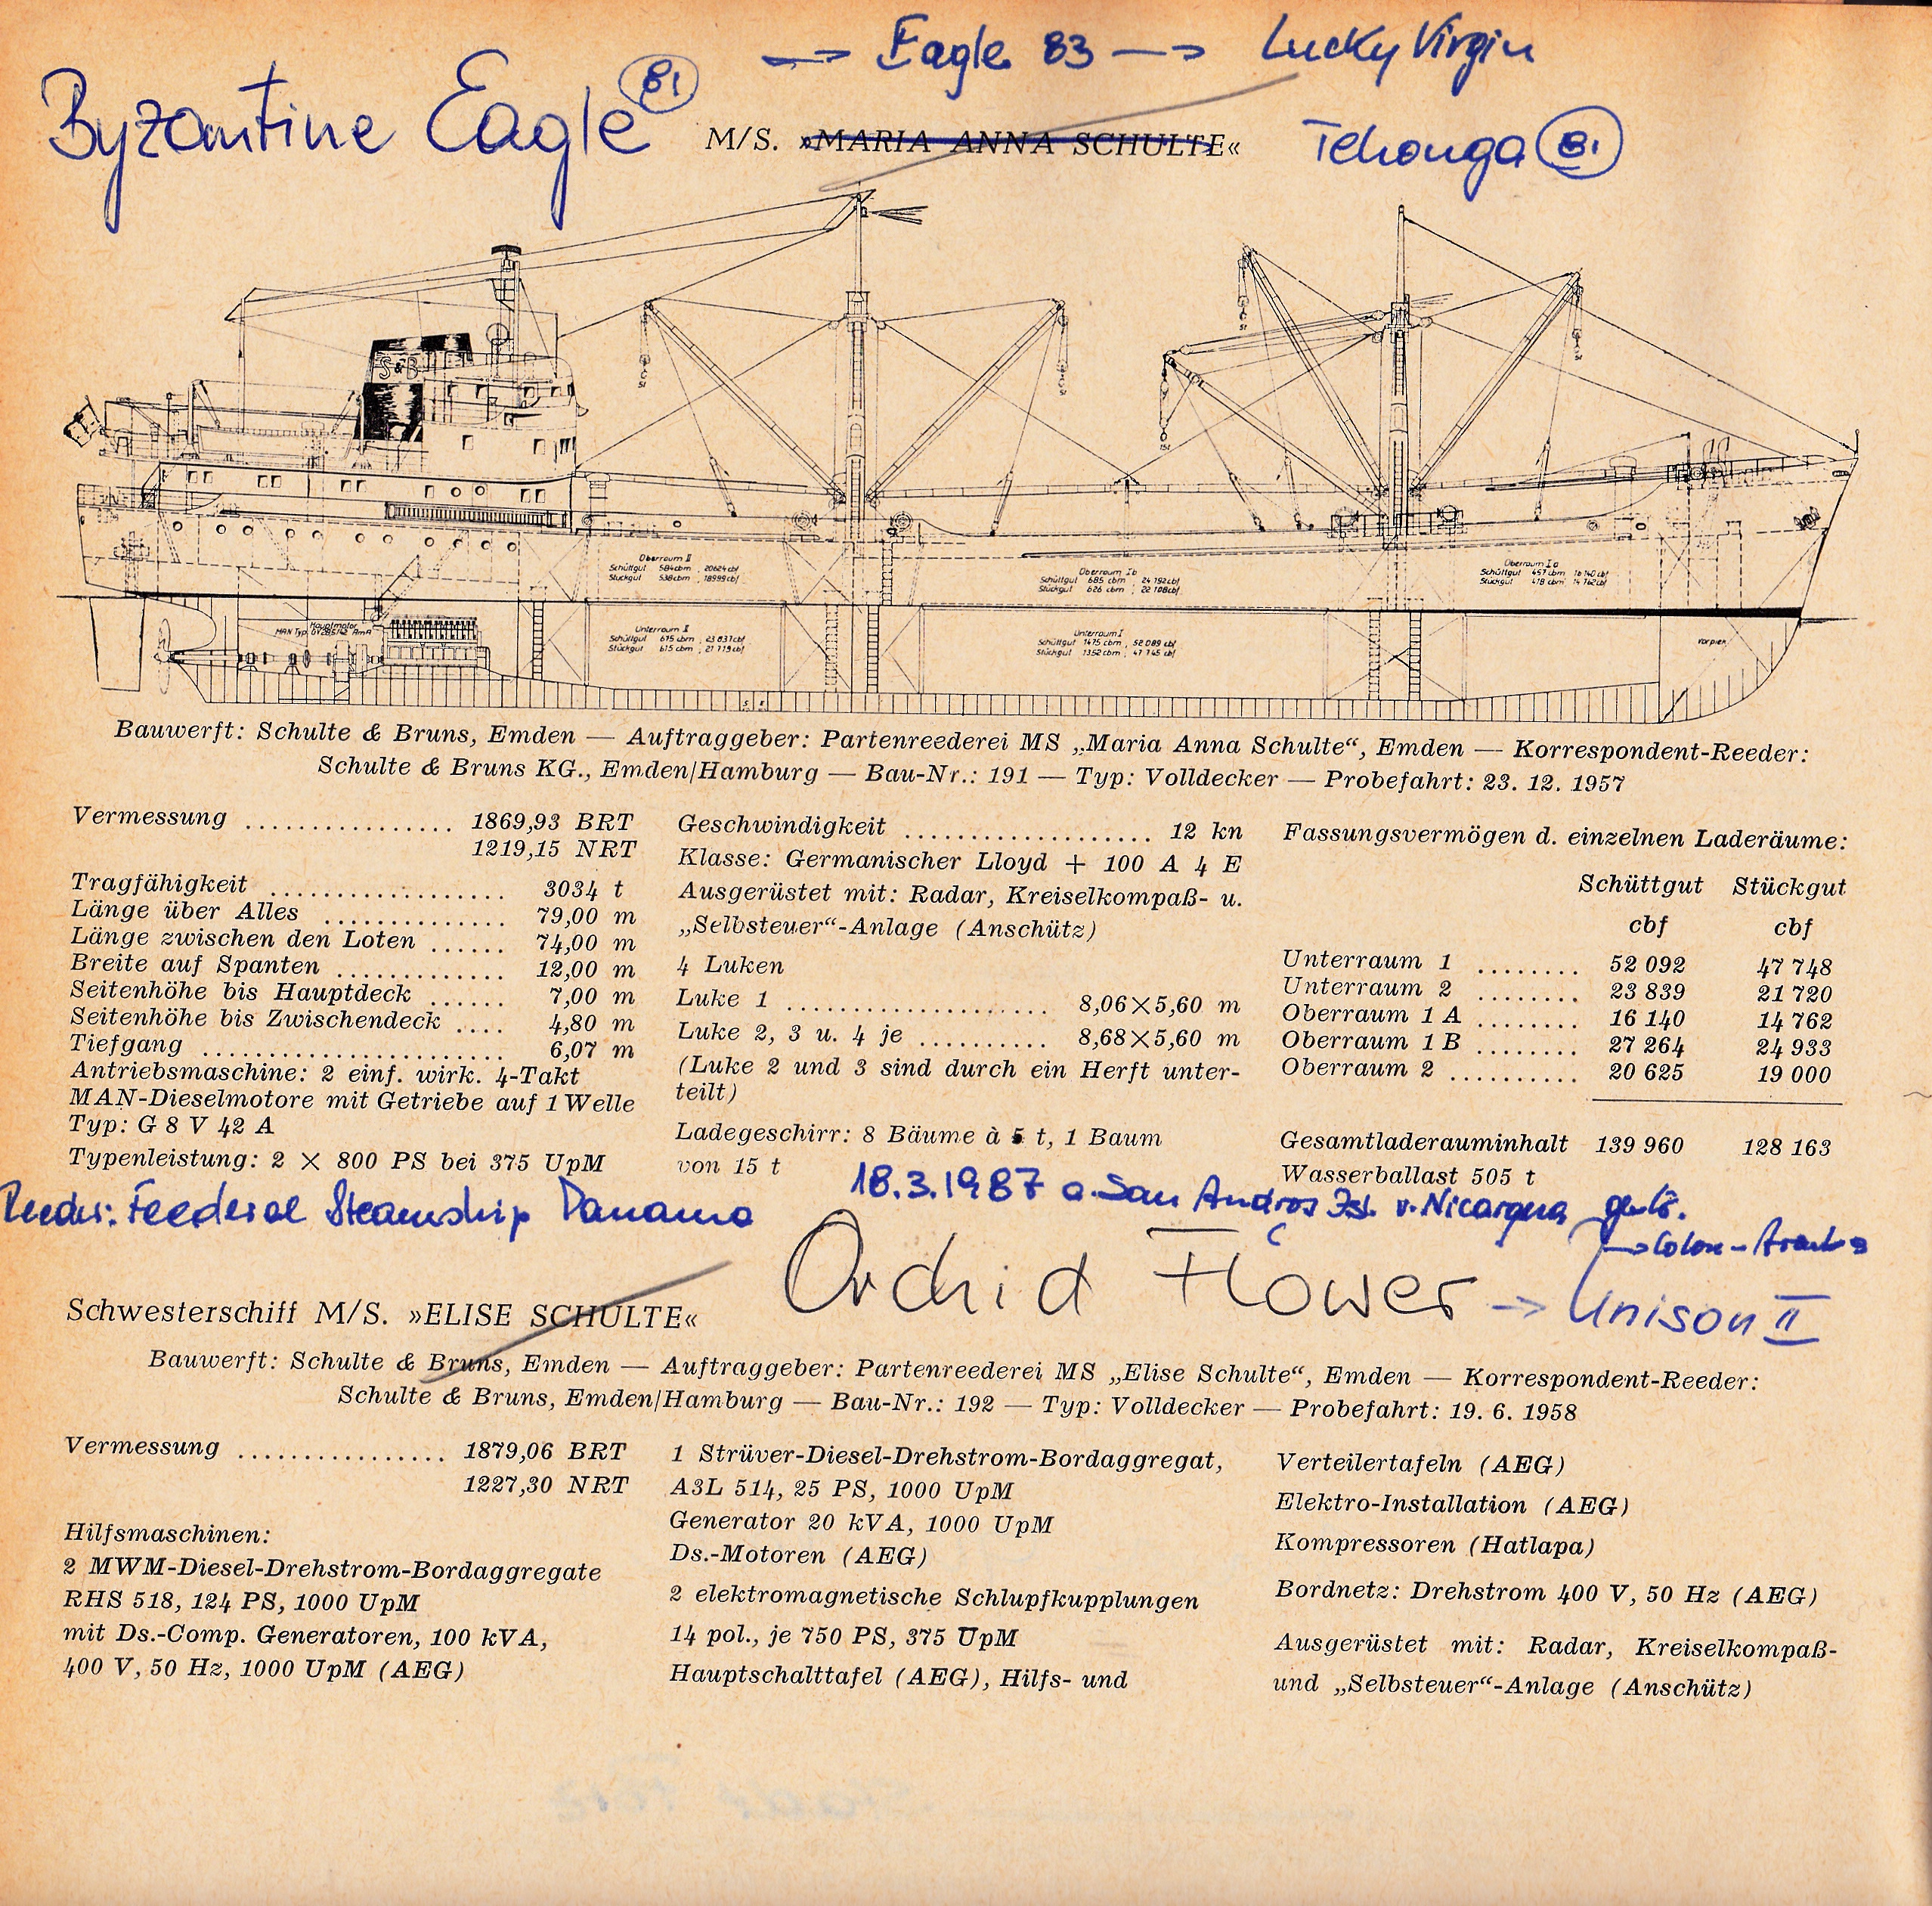 → Eagle 83 → Lucky Virgin
Byzantine Eagle 81
M/S. »MARIA ANNA SCHULTE«
Tehonga 81
S&B
Oberraum II
Schüttgut 584 cbm , 20624 cbf
Stückgut 538 cbm , 18999 cbf
Oberraum Ib
Schüttgut 685 cbm , 24 192 cbf
Stückgut 626 cbm , 22 108 cbf
Oberraum Ia
Schüttgut 457 cbm 16 140 cbf
Stückgut 418 cbm 14 762 cbf
Hauptmotor
MAN Typ
Unterraum II
Schüttgut 675 cbm , 23 837 cbf
Stückgut 615 cbm , 21 719 cbf
Unterraum I
Schüttgut 1475 cbm , 52 089 cbf
Stückgut 1352 cbm , 47 745 cbf
Vorpiek
Bauwerft: Schulte & Bruns, Emden — Auftraggeber: Partenreederei MS „Maria Anna Schulte“, Emden — Korrespondent-Reeder:
Schulte & Bruns KG., Emden/Hamburg — Bau-Nr.: 191 — Typ: Volldecker — Probefahrt: 23. 12. 1957
Vermessung ................ 1869,93 BRT
1219,15 NRT
Tragfähigkeit .................. 3034 t
Länge über Alles .............. 79,00 m
Länge zwischen den Loten ...... 74,00 m
Breite auf Spanten ............. 12,00 m
Seitenhöhe bis Hauptdeck ...... 7,00 m
Seitenhöhe bis Zwischendeck .... 4,80 m
Tiefgang ....................... 6,07 m
Antriebsmaschine: 2 einf. wirk. 4-Takt
MAN-Dieselmotore mit Getriebe auf 1 Welle
Typ: G 8 V 42 A
Typenleistung: 2 × 800 PS bei 375 UpM
Geschwindigkeit ................... 12 kn
Klasse: Germanischer Lloyd + 100 A 4 E
Ausgerüstet mit: Radar, Kreiselkompaß- u.
„Selbsteuer“-Anlage (Anschütz)
4 Luken
Luke 1 .................... 8,06×5,60 m
Luke 2, 3 u. 4 je .......... 8,68×5,60 m
(Luke 2 und 3 sind durch ein Herft unter-
teilt)
Ladegeschirr: 8 Bäume à 5 t, 1 Baum
von 15 t
Fassungsvermögen d. einzelnen Laderäume:
Schüttgut Stückgut
cbf cbf
Unterraum 1 ........ 52 092 47 748
Unterraum 2 ........ 23 839 21 720
Oberraum 1 A ........ 16 140 14 762
Oberraum 1 B ........ 27 264 24 933
Oberraum 2 .......... 20 625 19 000
Gesamtladerauminhalt 139 960 128 163
Wasserballast 505 t
Reeder: Feederal Steamship Panama
18.3.1987 a. San Andros Isl. v. Nicaragua
→ Colon –
Orchid Flower → Unison II
Schwesterschiff M/S. »ELISE SCHULTE«
Bauwerft: Schulte & Bruns, Emden — Auftraggeber: Partenreederei MS „Elise Schulte“, Emden — Korrespondent-Reeder:
Schulte & Bruns, Emden/Hamburg — Bau-Nr.: 192 — Typ: Volldecker — Probefahrt: 19. 6. 1958
Vermessung ................ 1879,06 BRT
1227,30 NRT
Hilfsmaschinen:
2 MWM-Diesel-Drehstrom-Bordaggregate
RHS 518, 124 PS, 1000 UpM
mit Ds.-Comp. Generatoren, 100 kVA,
400 V, 50 Hz, 1000 UpM (AEG)
1 Strüver-Diesel-Drehstrom-Bordaggregat,
A3L 514, 25 PS, 1000 UpM
Generator 20 kVA, 1000 UpM
Ds.-Motoren (AEG)
2 elektromagnetische Schlupfkupplungen
14 pol., je 750 PS, 375 UpM
Hauptschalttafel (AEG), Hilfs- und
Verteilertafeln (AEG)
Elektro-Installation (AEG)
Kompressoren (Hatlapa)
Bordnetz: Drehstrom 400 V, 50 Hz (AEG)
Ausgerüstet mit: Radar, Kreiselkompaß-
und „Selbsteuer“-Anlage (Anschütz)